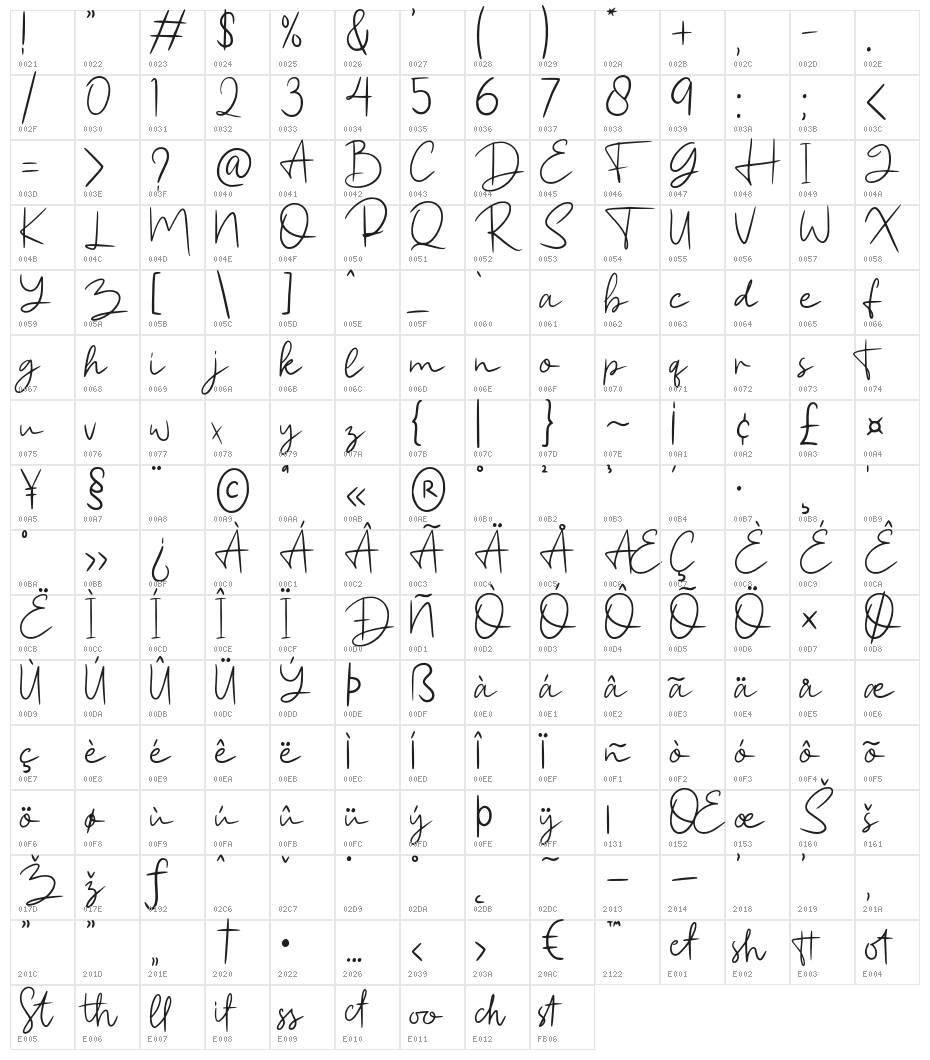 ! " # $ % & ' ( ) * + , - .
0021 0022 0023 0024 0025 0026 0027 0028 0029 002A 002B 002C 002D 002E
/ 0 1 2 3 4 5 6 7 8 9 : ; <
002F 0030 0031 0032 0033 0034 0035 0036 0037 0038 0039 003A 003B 003C
= > ? @ A B C D E F G H I J
003D 003E 003F 0040 0041 0042 0043 0044 0045 0046 0047 0048 0049 004A
K L M N O P Q R S T U V W X
004B 004C 004D 004E 004F 0050 0051 0052 0053 0054 0055 0056 0057 0058
Y Z [ \ ] ^ _ ` a b c d e f
0059 005A 005B 005C 005D 005E 005F 0060 0061 0062 0063 0064 0065 0066
g h i j k l m n o p q r s t
0067 0068 0069 006A 006B 006C 006D 006E 006F 0070 0071 0072 0073 0074
u v w x y z { | } ~ ¡ ¢ £ ¤
0075 0076 0077 0078 0079 007A 007B 007C 007D 007E 00A1 00A2 00A3 00A4
¥ § ¨ © ª « ® ° ² ³ ´ · ¸ ¹
00A5 00A7 00A8 00A9 00AA 00AB 00AE 00B0 00B2 00B3 00B4 00B7 00B8 00B9
º » ¿ À Á Â Ã Ä Å Æ Ç È É Ê
00BA 00BB 00BF 00C0 00C1 00C2 00C3 00C4 00C5 00C6 00C7 00C8 00C9 00CA
Ë Ì Í Î Ï Ð Ñ Ò Ó Ô Õ Ö × Ø
00CB 00CC 00CD 00CE 00CF 00D0 00D1 00D2 00D3 00D4 00D5 00D6 00D7 00D8
Ù Ú Û Ü Ý Þ ß à á â ã ä å æ
00D9 00DA 00DB 00DC 00DD 00DE 00DF 00E0 00E1 00E2 00E3 00E4 00E5 00E6
ç è é ê ë ì í î ï ñ ò ó ô õ
00E7 00E8 00E9 00EA 00EB 00EC 00ED 00EE 00EF 00F1 00F2 00F3 00F4 00F5
ö ø ù ú û ü ý þ ÿ ı Œ œ Š š
00F6 00F8 00F9 00FA 00FB 00FC 00FD 00FE 00FF 0131 0152 0153 0160 0161
Ž ž ƒ ˆ ˇ ˙ ˚ ˛ ˜ – — ‘ ’ ‚
017D 017E 0192 02C6 02C7 02D9 02DA 02DB 02DC 2013 2014 2018 2019 201A
“ ” „ † • … ‹ › € ™ et sh tt ot
201C 201D 201E 2020 2022 2026 2039 203A 20AC 2122 E001 E002 E003 E004
St th ll it ss ct oo ch st
E005 E006 E007 E008 E009 E010 E011 E012 FB06